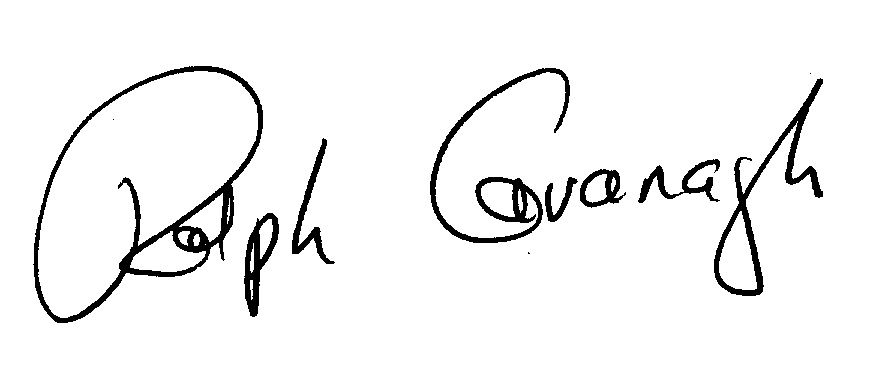 Ralph Cavanagh